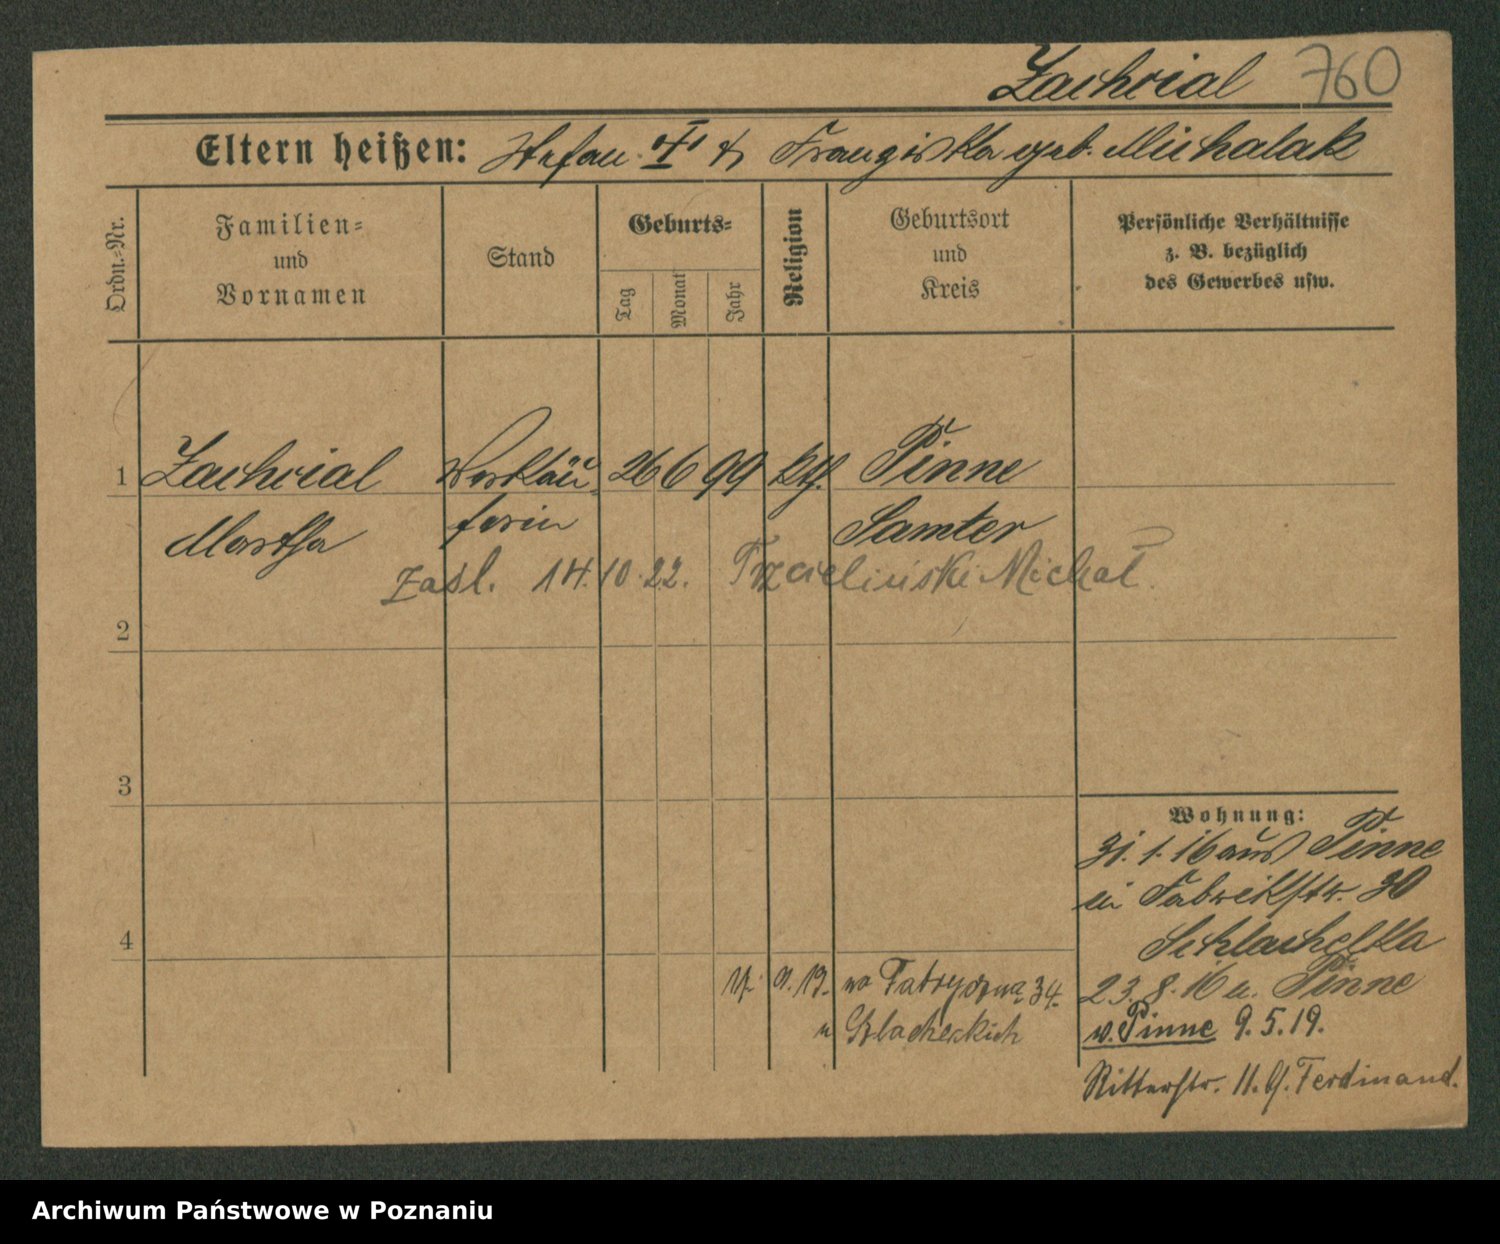 Zachcial 760
Eltern heißen: Stefan & Franziska geb. Michalak
Ordn.-Nr.
Familien-
und
Vornamen
Stand
Geburts-
Tag
Monat
Jahr
Religion
Geburtsort
und
Kreis
Persönliche Verhältnisse
z. B. bezüglich
des Gewerbes usw.
1 Zachcial Verkäu- 26 6 99 kth. Pinne
Martha ferin Samter
zasl. 14.10.22. Trzcielinski Michał.
2
3
4
Wohnung:
31. 1. 16 aus Pinne
in Fabrikstr. 30
Schlachetka
23. 8. 16 n. Pinne
v. Pinne 9.5.19.
Ritterstr. 11. b/. Ferdinand.
9. 19. na Fabryczna 34.
u Szlacheckich
Archiwum Państwowe w Poznaniu